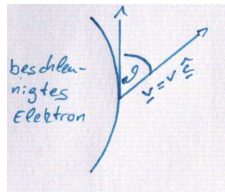 beschleu-
nigtes
Elektron
ϑ
v = v r̂